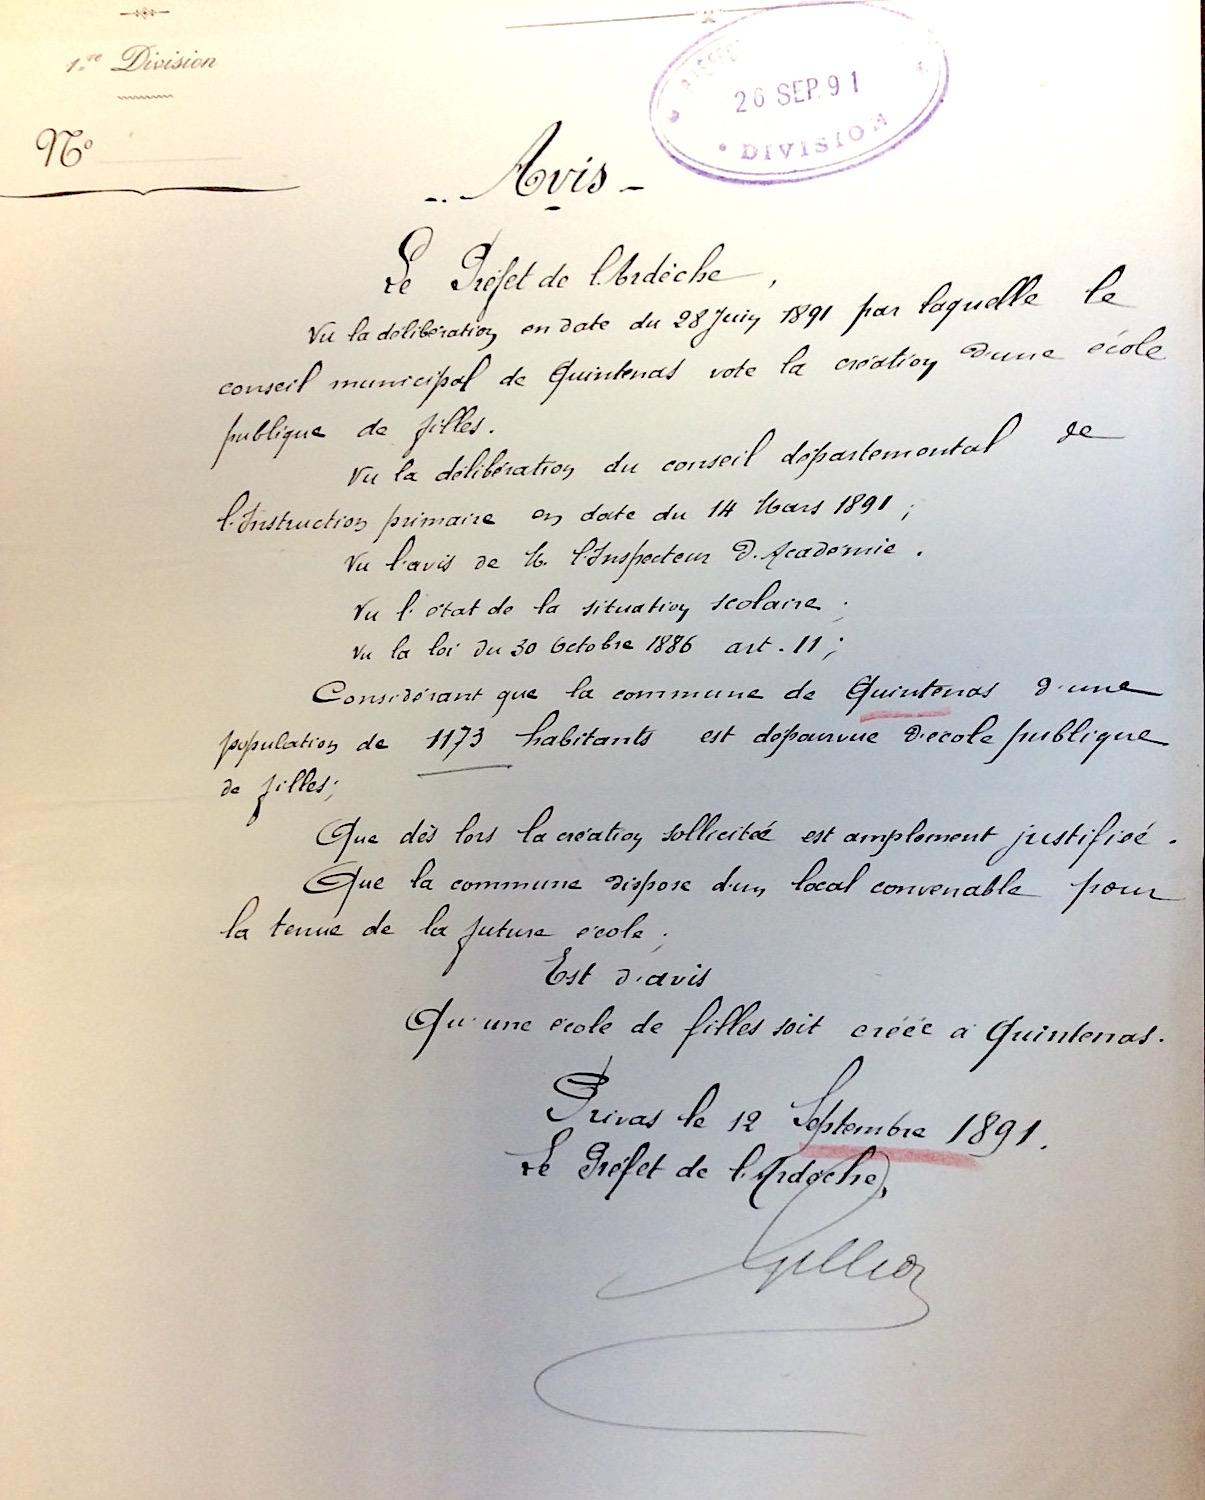 1re Division
No
26 SEP. 91
DIVISION
Avis
Le Préfet de l'Ardèche,
Vu la délibération en date du 28 Juin 1891 par laquelle le
conseil municipal de Quintenas vote la création d'une école
publique de filles.
Vu la délibération du conseil départemental de
l'Instruction primaire en date du 14 Mars 1891 ;
Vu l'avis de M. l'Inspecteur d'Académie.
Vu l'état de la situation scolaire ;
Vu la loi du 30 Octobre 1886 art. 11 ;
Considérant que la commune de Quintenas d'une
population de 1173 habitants est dépourvue d'école publique
de filles;
Que dès lors la création sollicitée est amplement justifiée.
Que la commune dispose d'un local convenable pour
la tenue de la future école ;
Est d'avis
Qu'une école de filles soit créée à Quintenas.
Privas le 12 Septembre 1891.
Le Préfet de l'Ardèche,